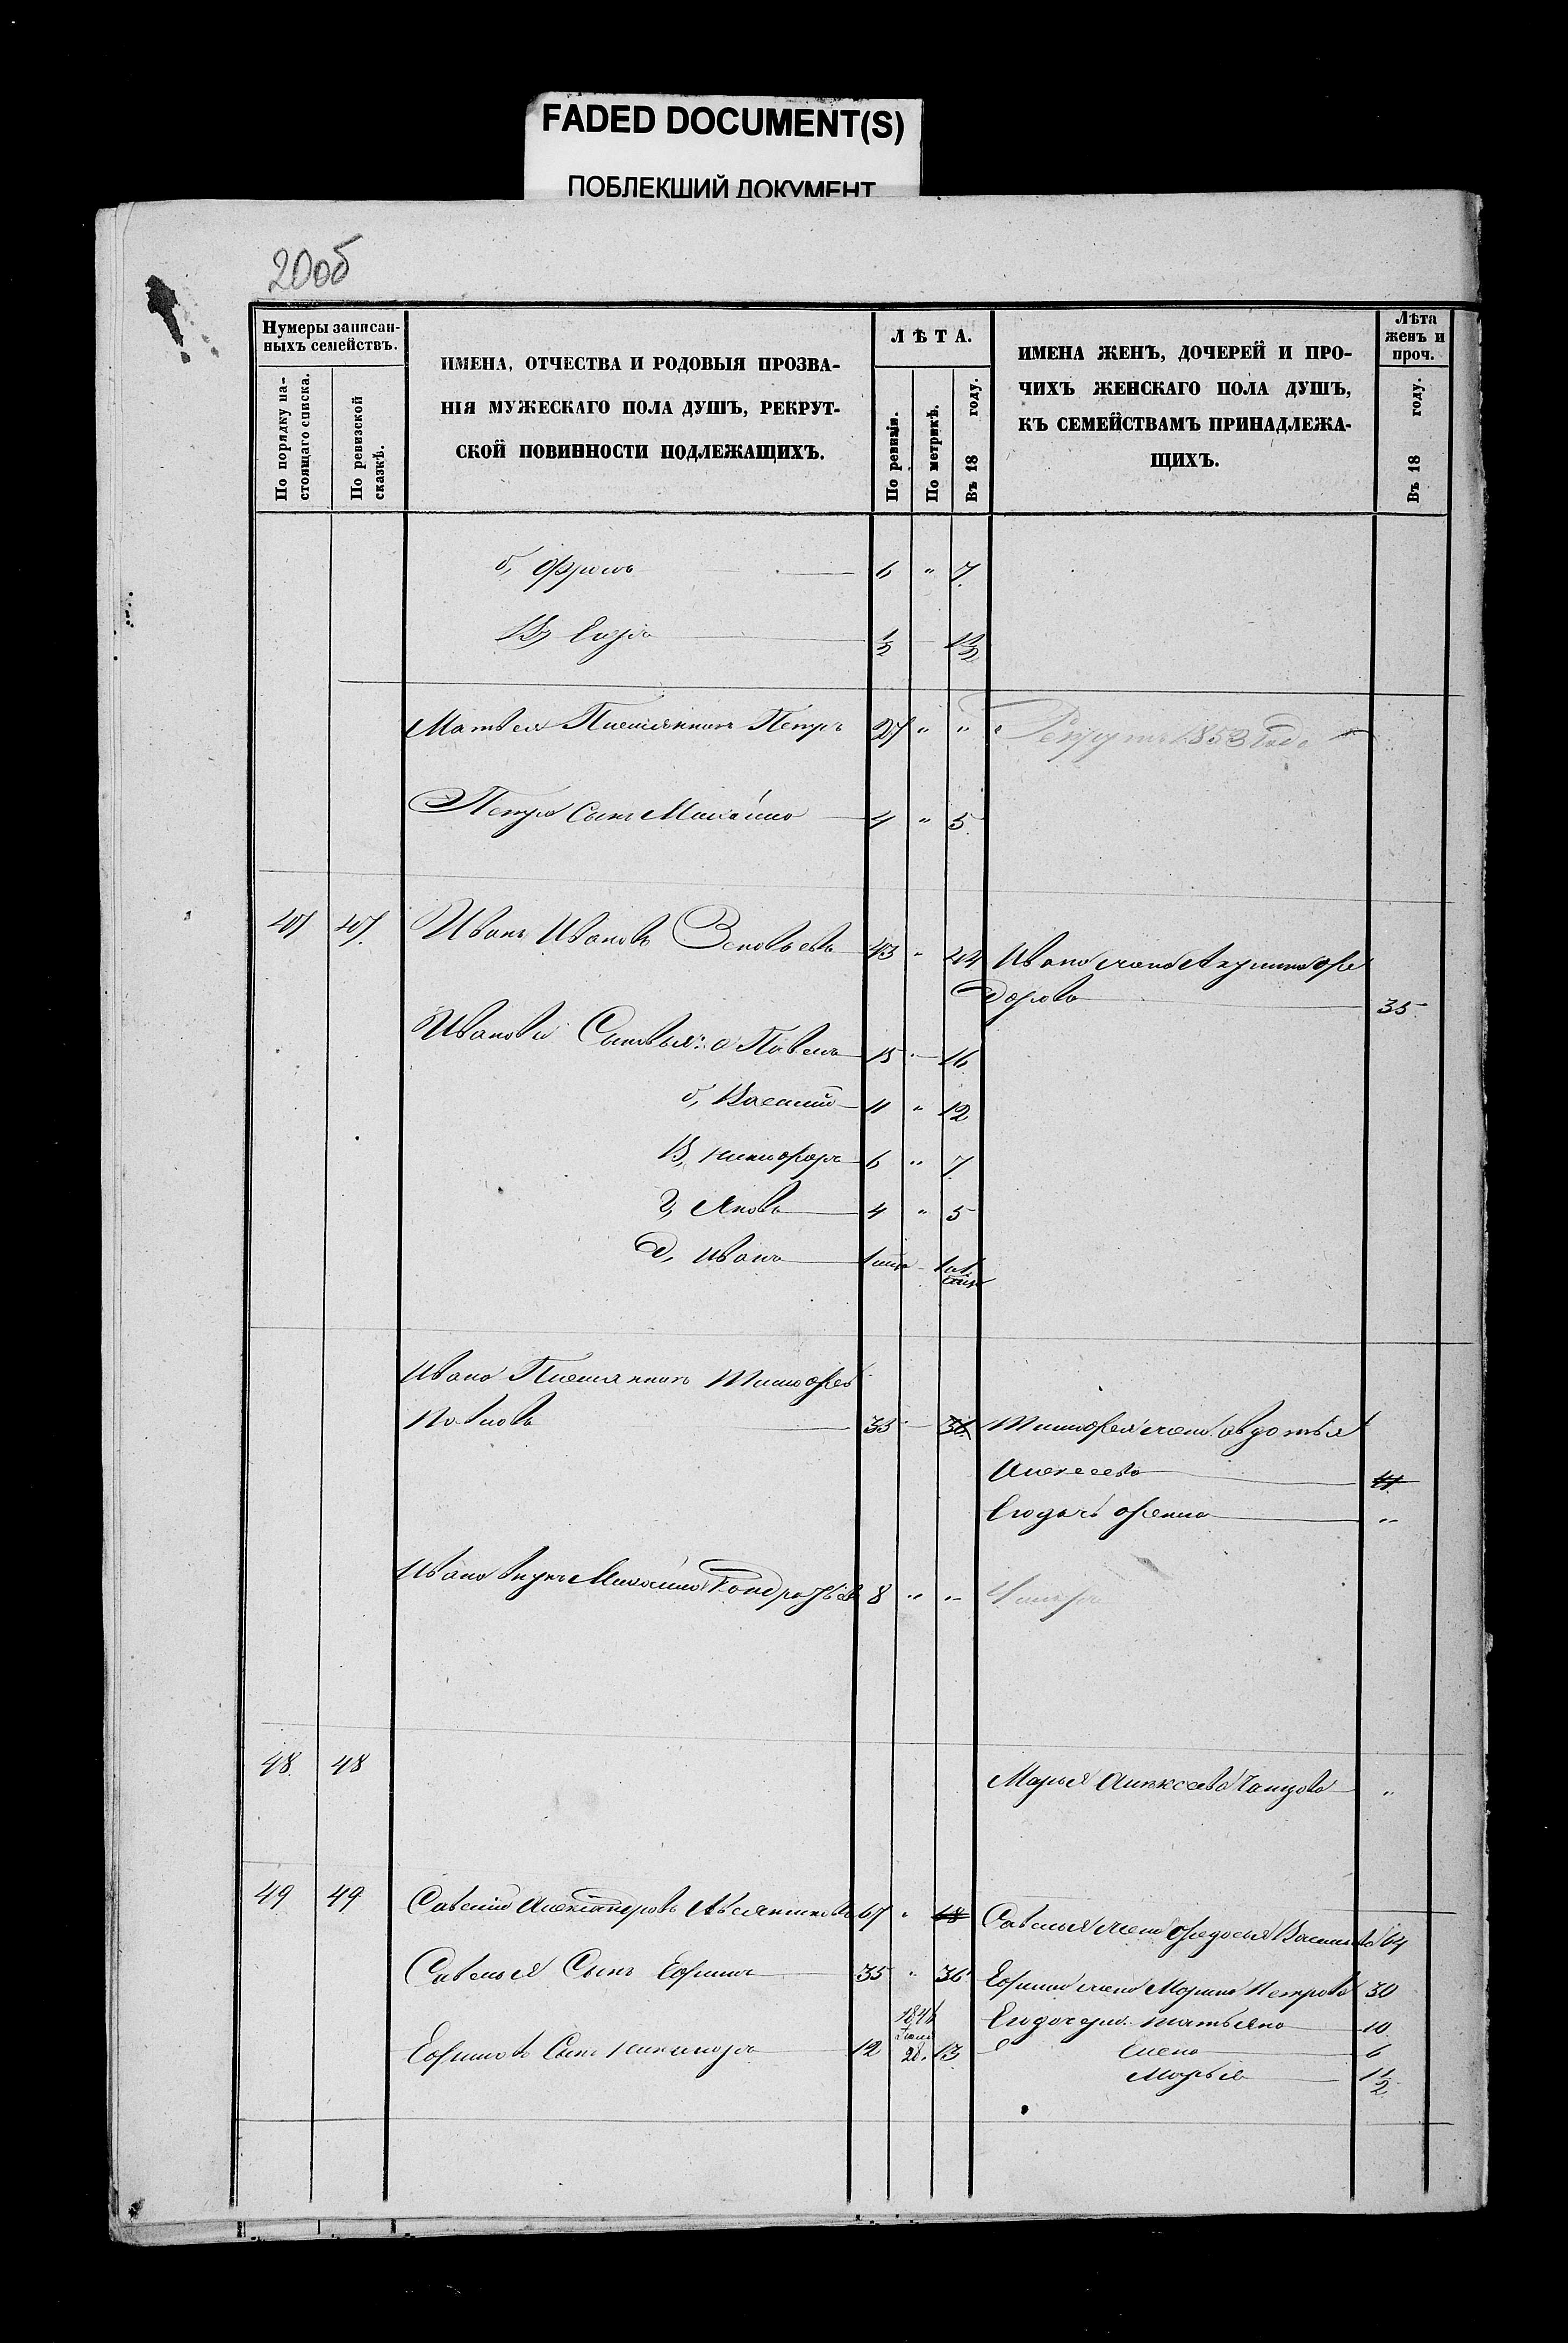 FADED DOCUMENT(S)
ПОБЛЕКШИЙ ДОКУМЕНТ
20об
Нумеры записан-
ныхъ семействъ.
По порядку на-
стоящаго списка.
По ревизской
сказкѣ.
ИМЕНА, ОТЧЕСТВА И РОДОВЫЯ ПРОЗВА-
НІЯ МУЖЕСКАГО ПОЛА ДУШЪ, РЕКРУТ-
СКОЙ ПОВИННОСТИ ПОДЛЕЖАЩИХЪ.
ЛѢТА.
По ревизіи.
По метрикѣ.
Въ 18 году.
ИМЕНА ЖЕНЪ, ДОЧЕРЕЙ И ПРО-
ЧИХЪ ЖЕНСКАГО ПОЛА ДУШЪ,
КЪ СЕМЕЙСТВАМЪ ПРИНАДЛЕЖА-
ЩИХЪ.
Лѣта
женъ и
проч.
Въ 18 году.
б, 6 " 7
В, Егоръ ½ 1½
Матвея Племянникъ Петръ 27 " " Рекрутъ 1853 года
Петра Сынъ Михайло 4 " 5
47 47 Иванъ Ивановъ Зеновьевъ 43 " 44 Ивана жена Акулина Фе
дорова 35
Ивановы Сыновья: а Павелъ 15 " 16
б, Василій 11 " 12
В, Никифоръ 6 " 7
г, Яковъ 4 " 5
д, Иванъ
Ивана Племянникъ Тимофей
Павловъ 35 36 Тимофея жена Авдотья
Алексеева 41
Его дочь Фекла "
Ивана внукъ Михайло Кондратьевъ 8 " " Умеръ
48 48 Марья Алексеева "
49 49 Савелій Александровъ 67 " 68 Савелья жена Федосья Васильева 64
Савелья Сынъ Ефимъ 35 " 36 Ефима жена Марина Петрова 30
1841
Его дочери Татьяна 10
Ефимовъ Сынъ Никаноръ 12 28 13 Елена 6
Марья 1½